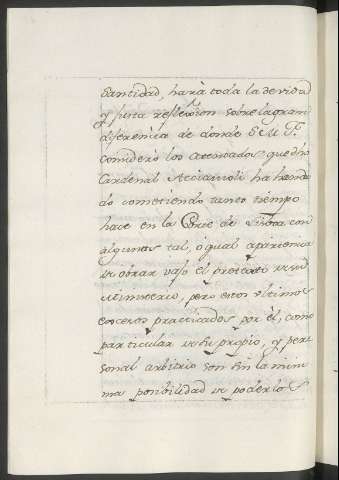 Santidad, harà toda la devida
y justa reflexion sobre la gran
diferencia de donde S. M. F.
considerò los atentados, que dho
Cardenal Acciaiuoli ha havi
do cometiendo tanto tiempo
hace en la Corte de Lisboa con
alguna tal, o qual apariencia
de obrar vajo el pretexto de su
Ministerio, pero estos ultimos
excesos practicados por èl, como
particular de su propio, y per
sonal arbitrio son sin la mini
ma posibilidad de poderlos